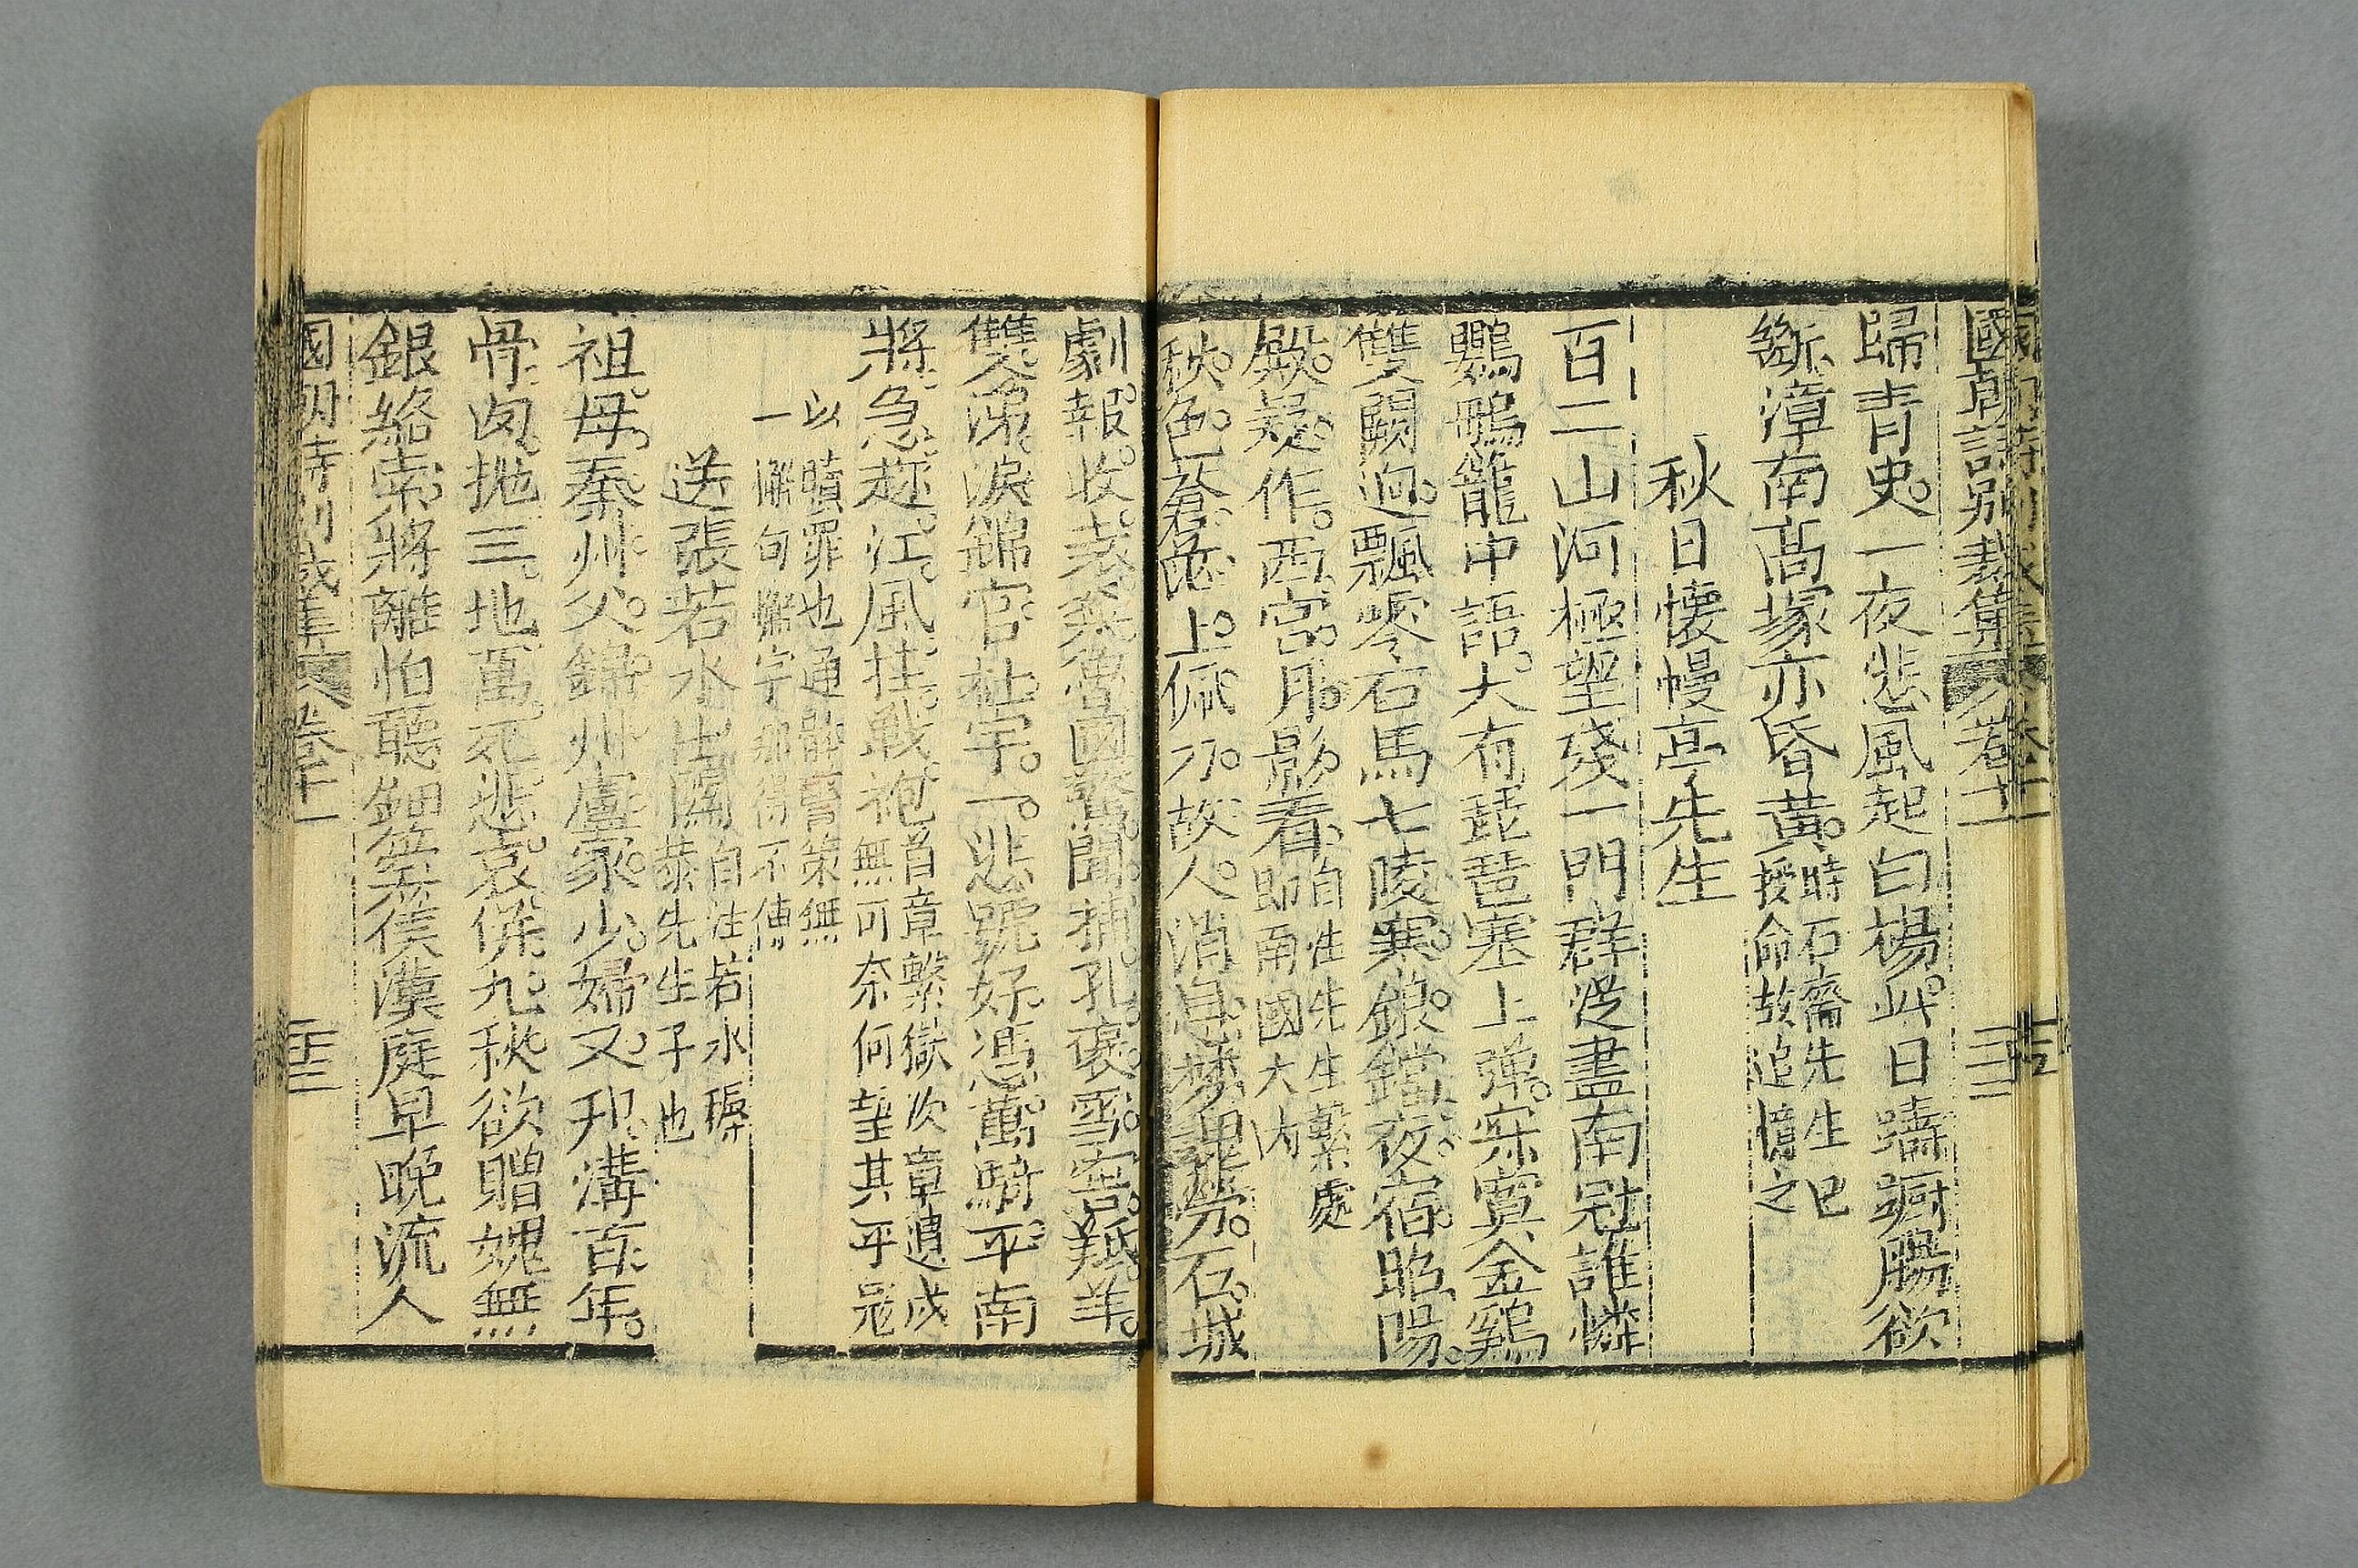 國朝詩別裁集 卷十一 二十二
歸青史一夜悲風起白楊此日躊躇腸欲
斷漳南高塚亦昏黃時石齋先生已
授命故追憶之
秋日懷幔亭先生
百二山河極望殘一門群從盡南冠誰憐
鸚鵡籠中語大有琵琶塞上彈寂寞金鷄
雙闕迥飄零石馬七陵寒鋃鐺夜宿昭陽
殿疑作西宮月影看自注先生繫處
即南國大內
秋色蒼茫上佩刀故人消息夢魂勞石城
劇報收袁粲魯國驚聞捕孔褒雪窖羝羊
雙涕淚錦官杜宇一悲號好憑萬騎平南
將急趂江風挂戰袍首章繫獄次章遺戍
無可奈何望其平冦
以贖罪也通體警策無
一懈句懈字那得不傳
送張若水出關自注若水穉
恭先生子也
祖母秦州父錦州盧家少婦又邗溝百年
骨肉拋三地萬死悲哀併九秋欲贈媿無
銀絡索將離怕聽鈿箜篌漢庭早晚流人
國朝詩別裁集 卷十一 二十三